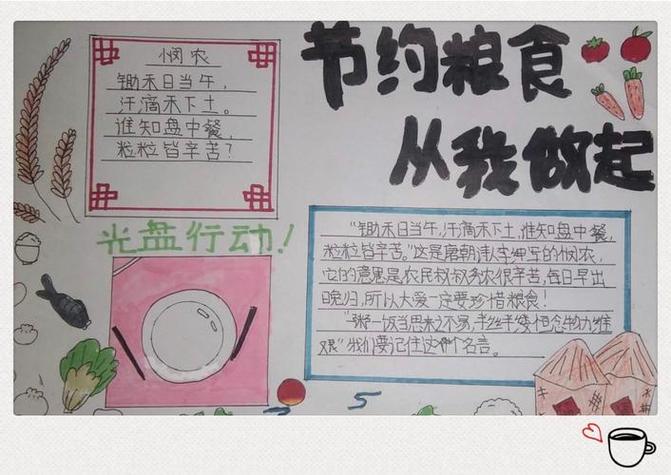 节约粮食
从我做起
悯农
锄禾日当午，
汗滴禾下土。
谁知盘中餐，
粒粒皆辛苦？
光盘行动！
“锄禾日当午，汗滴禾下土，谁知盘中餐，
粒粒皆辛苦。”这是唐朝诗人李绅写的悯农，
它的意思是农民叔叔务农很辛苦，每日早出
晚归，所以大爱一定要珍惜粮食！
“一粥一饭当思来之不易，半丝半缕恒念物力维
艰”我们要记住这个名言。